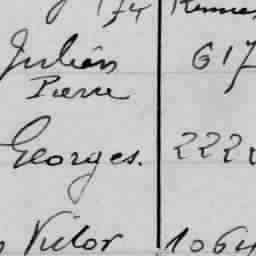 174 Rennes
Julien 617
Pierre
Georges. 222
Victor 1064